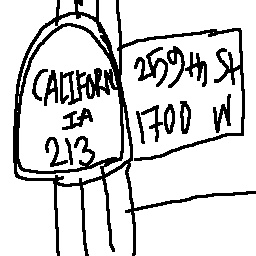 CALIFORN
IA
213
259th St
1700 W